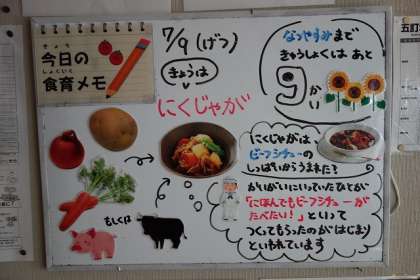 きょう
今日の
しょくいく
食育メモ
7/9(げつ)
きょうは
にくじゃが
なつやすみまで
きゅうしょくは あと
9かい
もしくは
にくじゃがは
ビーフシチューの
しっぱいからうまれた?
かいがいにいっていたひとが
「にほんでもビーフシチューが
たべたい!」といって
つくってもらったのがはじまり
といわれています